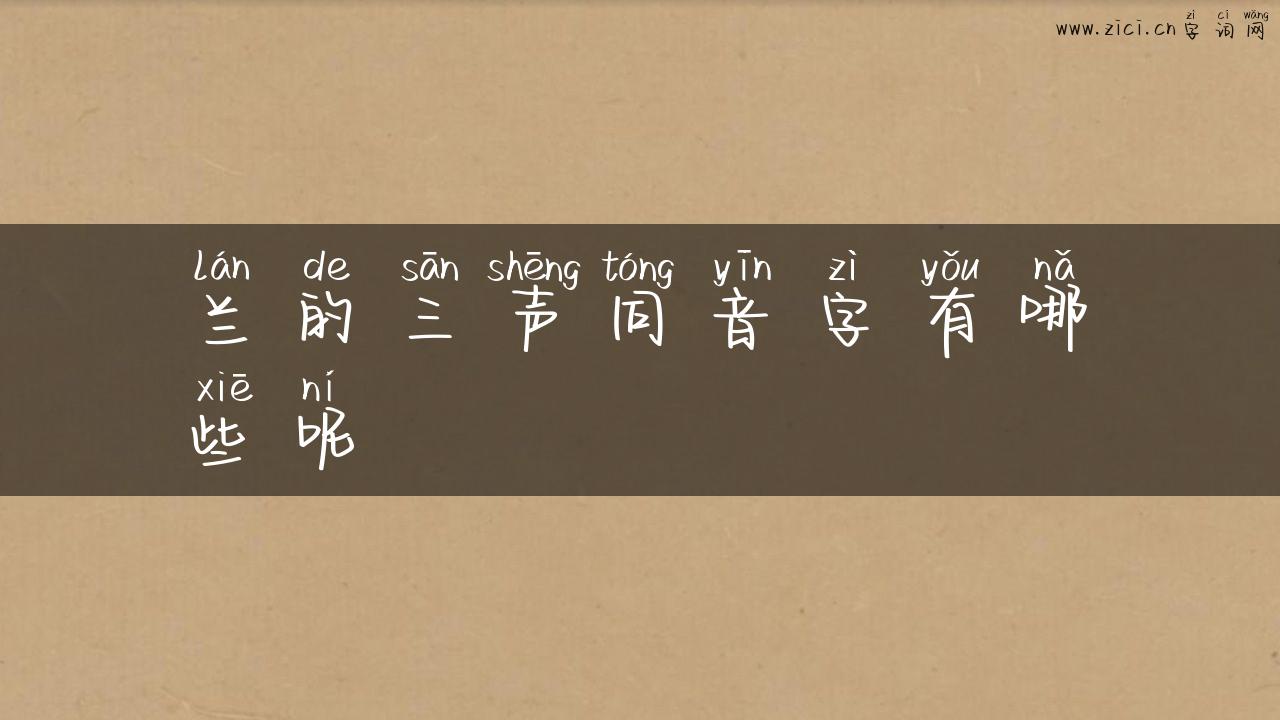 zì cí wǎng
www.zici.cn 字词网
lán de sān shēng tóng yīn zì yǒu nǎ
兰的三声同音字有哪
xiē ní
些呢